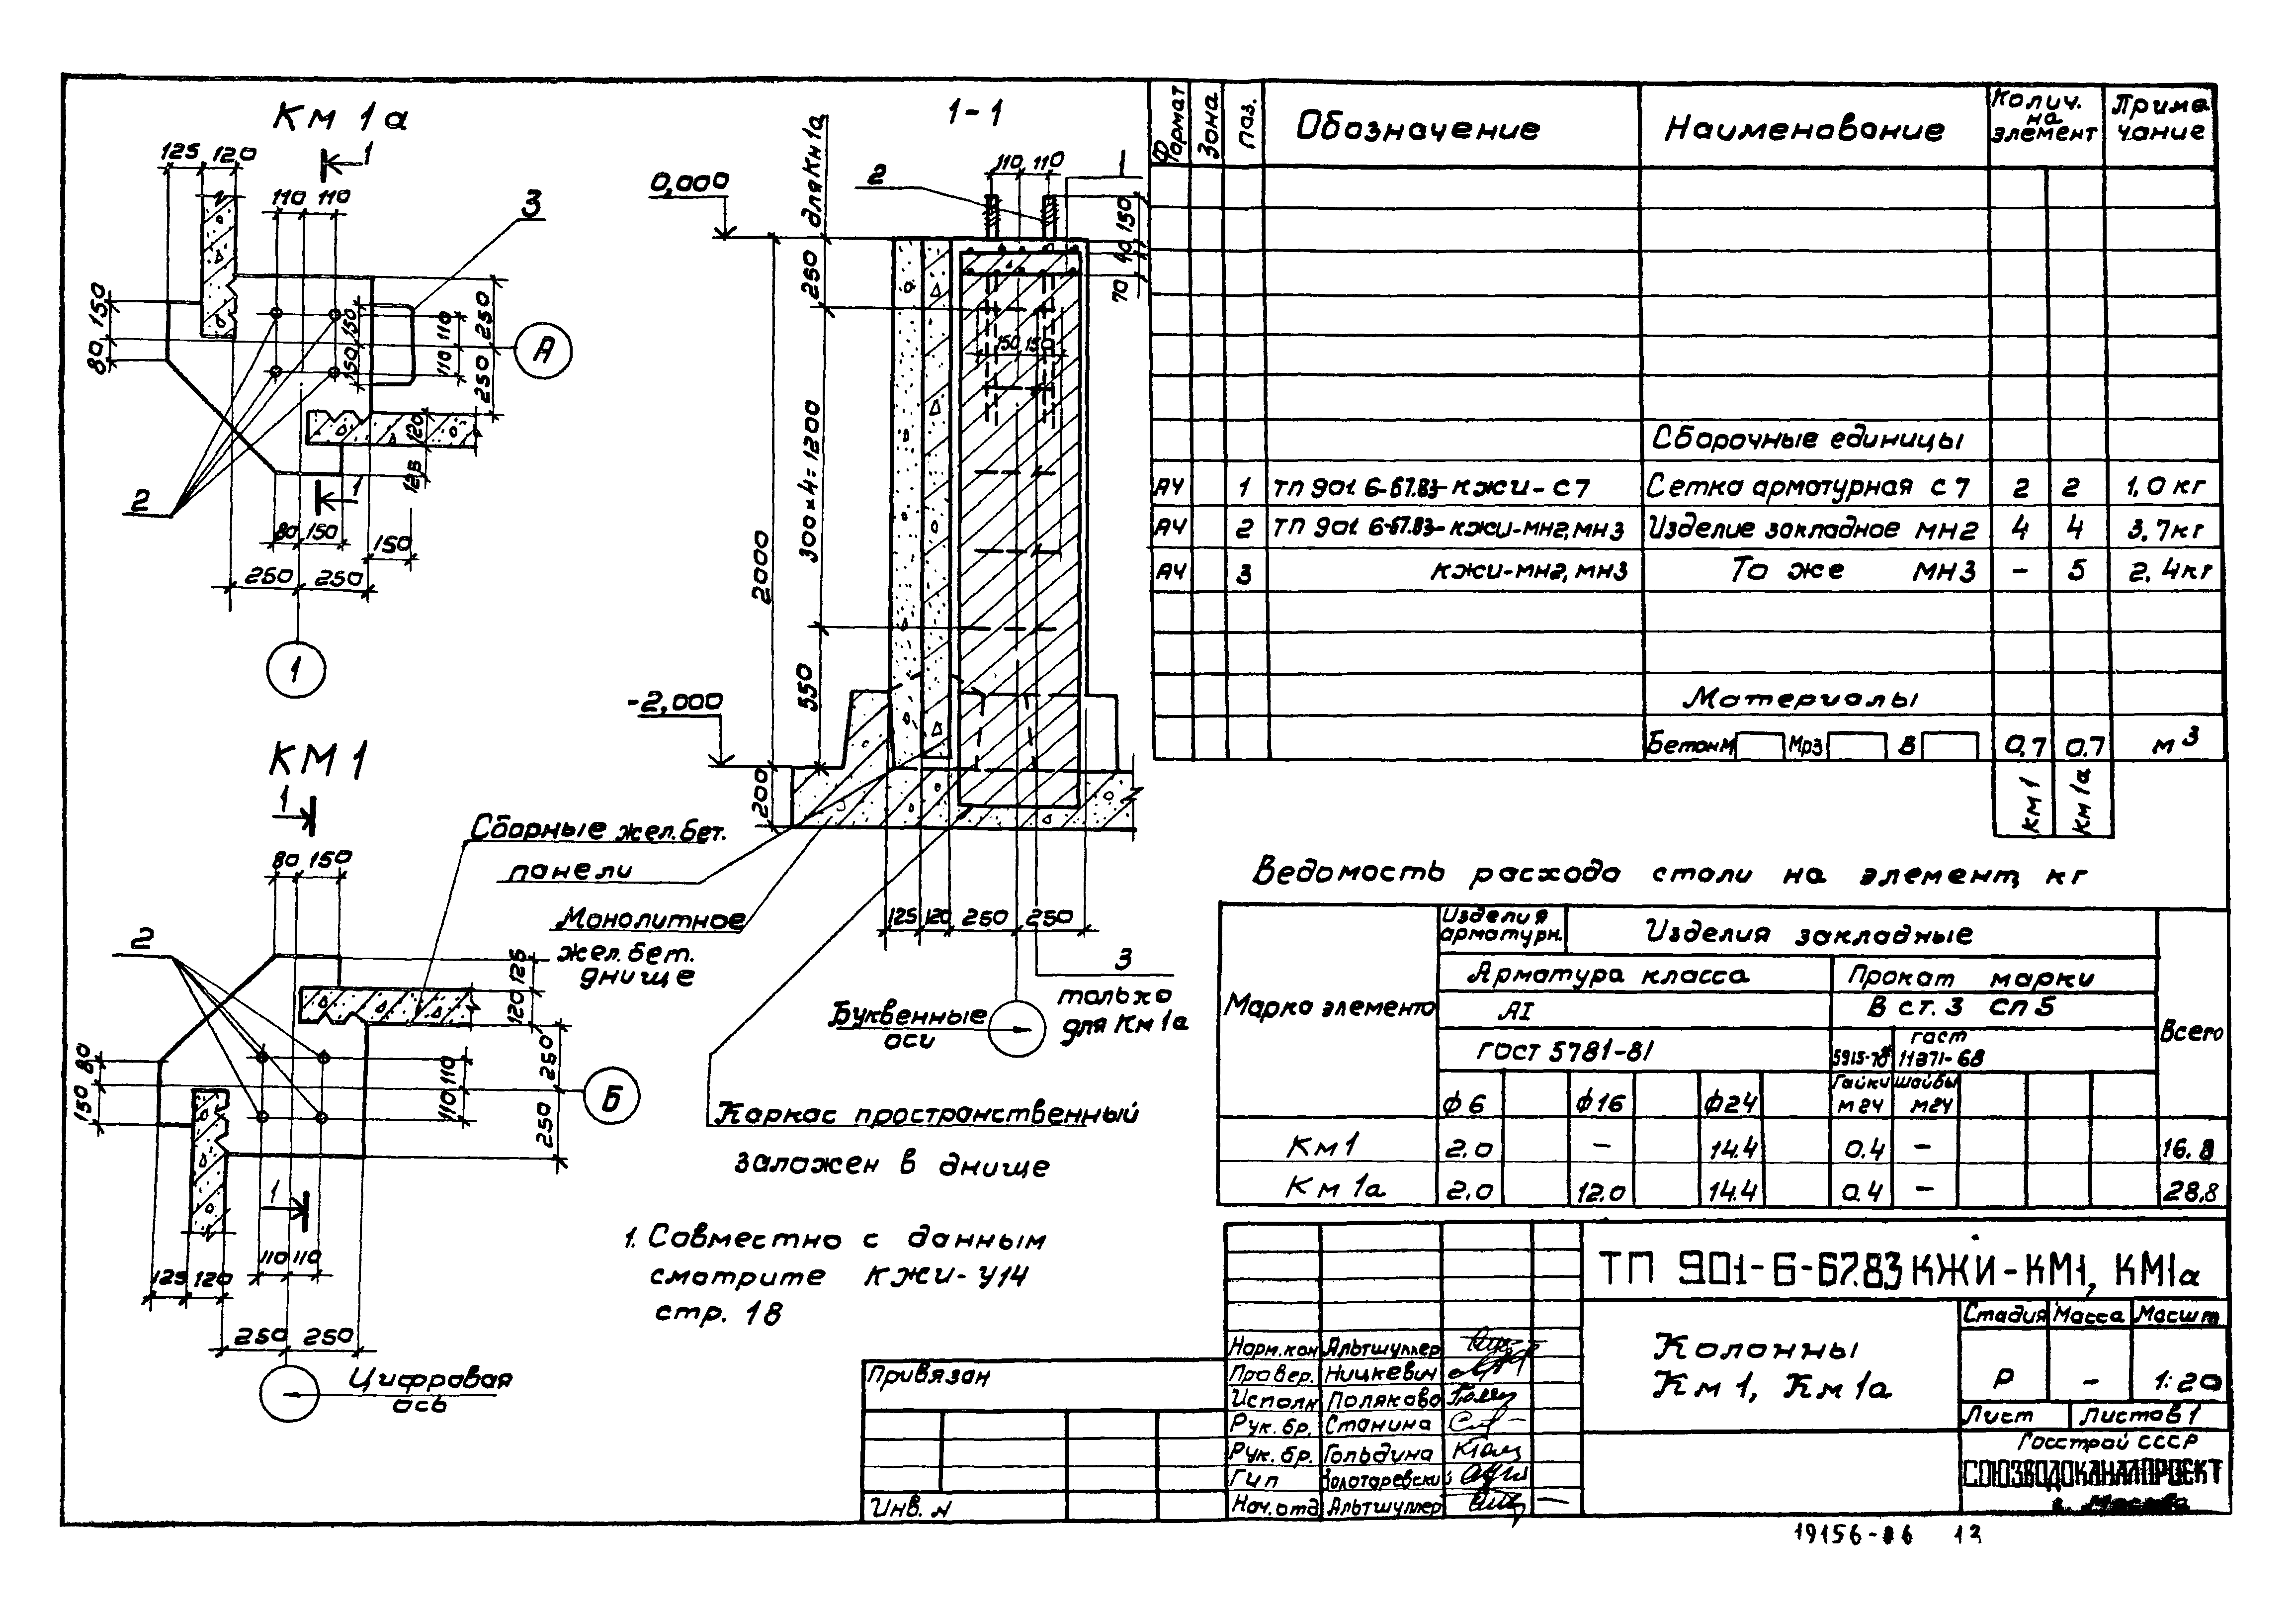 Км 1а
1
125 120
110 110
3
150
80
150
150
110
110
250
250
А
120
125
2
1
80 150
150
250 250
1
КМ 1
1
80 150
2
125
120
250
80
150
110
110
250
Б
1
110 110
125 120
250 250
Цифровая
ось
1-1
0,000
для Км 1а
250
300×4=1200
550
2000
200
-2,000
2
110 110
1
150
40
70
150 150
125 120 250 250
Сборные жел.бет.
панели
Монолитное
жел.бет.
днище
Буквенные
оси
3
только
для Км 1а
Каркас пространственный
заложен в днище
1. Совместно с данным
смотрите КЖИ-У14
стр. 18
Формат Зона Поз. Обозначение Наименование Колич. на элемент Примечание
Сборочные единицы
А4 1 ТП 901.6-67.83-КЖИ-С7 Сетка арматурная С7 2 2 1,0 кг
А4 2 ТП 901.6-67.83-КЖИ-МН2, МН3 Изделие закладное МН2 4 4 3,7 кг
А4 3 КЖИ-МН2, МН3 То же МН3 - 5 2,4 кг
Материалы
Бетон М Мрз В 0,7 0,7 м³
Км 1 Км 1а
Ведомость расхода стали на элемент, кг
Марка элемента Изделия арматурн. Изделия закладные Всего
Арматура класса Прокат марки
АI В ст. 3 сп 5
ГОСТ 5781-81 ГОСТ
5915-70* 11371-68
Гайки М24 Шайбы М24
ф6 ф16 ф24
Км 1 2.0 - 14.4 0.4 - 16.8
Км 1а 2.0 12.0 14.4 0.4 - 28.8
ТП 901-6-67.83 КЖИ-КМ1, КМ1а
Колонны
Км 1, Км 1а
Стадия Масса Масшт
Р - 1:20
Лист Листов 1
Госстрой СССР
СОЮЗВОДОКАНАЛПРОЕКТ
г. Москва
Норм.кон Альтшуллер
Провер. Ницкевич
Исполн Полякова
Рук. бр. Станина
Рук. бр. Гольдина
Гип Золотаревский
Нач. отд Альтшуллер
Привязан
Инв. N